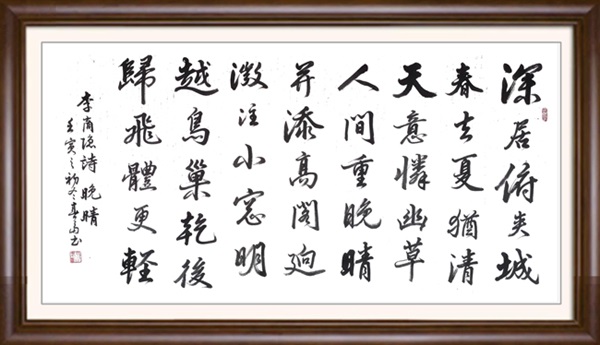 深居俯夹城
春去夏猶清
天意憐幽草
人間重晚晴
并添高閣迥
微注小窓明
越鳥巢乾後
歸飛體更軽
李商隐詩晚晴
壬寅之初冬春山书